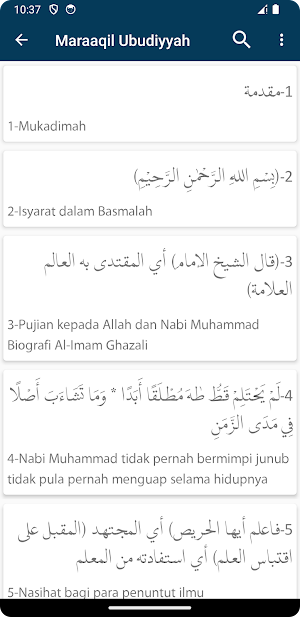 10:37
Maraaqil Ubudiyyah
1-مقدمة
1-Mukadimah
2-(بِسْمِ اللهِ الرَّحْمٰنِ الرَّحِيْمِ)
2-Isyarat dalam Basmalah
3-(قال الشيخ الامام) أي المقتدى به العالم
العلامة)
3-Pujian kepada Allah dan Nabi Muhammad
Biografi Al-Imam Ghazali
4-لَمْ يَحْتَلِمْ قَطُّ طٰهَ مُطْلَقًا أَبَدًا * وَمَا تَثَاءَبَ أَصْلًا
فِي مَدَى الزَّمَنِ
4-Nabi Muhammad tidak pernah bermimpi junub
tidak pula pernah menguap selama hidupnya
5-فاعلم أيها الحريص) أي المجتهد (المقبل على
اقتباس العلم) أي استفادته من المعلم
5-Nasihat bagi para penuntut ilmu